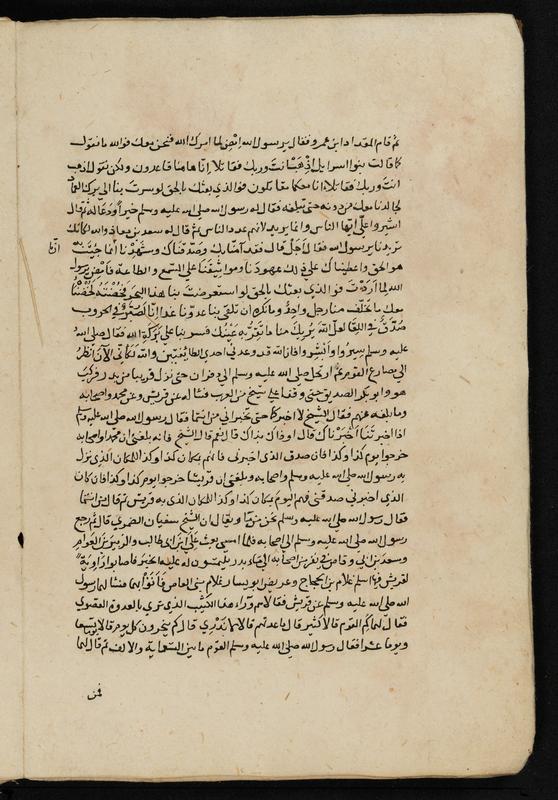 ثم قام المقداد ابن عمرو فقال يرسول الله امض لما امرك الله فنحن معك فوالله ما نقول
كما قالت بنوا اسرايل اذهب انت وربك فقاتلا انا هاهنا قاعدون ولكن نقول اذهب
انت وربك فقاتلا انا معكما مقاتلون فوالذي بعثك بالحق لو سرت بنا الى برك الغماد
لجالدنا معك من دونه حتى تبلغه فقال له رسول الله صلى الله عليه وسلم خيرا ودعا له ثم قال
اشيروا علي ايها الناس وانما يريد لانهم عدد الناس ثم قال له سعد بن معاذ والله لكانك
تريدنا يرسول الله فقال اجل قال فقد آمنا بك وصدقناك وشهدنا انما جيت به
هو الحق واعطيناك على ذلك عهودنا ومواثيقنا على السمع والطاعة فامض يرسول
الله لما اردت فوالذي بعثك بالحق لو استعرضت بنا هذا البحر فخضته لخضنا
معك ما تخلف منا رجل واحد وما نكره ان تلقى بنا عدونا غدا انا لصبر في الحروب
صدق في اللقا لعل الله يريك منا ما تقر به عينك فسر بنا على بركة الله فقال صلى الله
عليه وسلم سيروا وابشروا فان الله قد وعدني احدى الطايفتين والله لكاني الآن انظر
الى مصارع القوم ثم ارتحل صلى الله عليه وسلم الى دفران حتى نزل قريبا من بدر فركب
هو وابو بكر الصديق حتى وقفا على شيخ من العرب فسئاله عن قريش وعن محمد واصحابه
وما بلغه عنهم فقال الشيخ لا اخبركما حتى تخبراني من انتما فقال رسول الله صلى الله عليه وسلم
اذا اخبرتنا اخبرناك قال اوذاك بذاك قال نعم قال الشيخ فانه بلغني ان محمدا واصحابه
خرجوا يوم كذا وكذا فان صدق الذي اخبرني فانهم بمكان كذا وكذا للمكان الذي نزل
به رسول الله صلى الله عليه وسلم واصحابه وبلغني ان قريشا خرجوا يوم كذا وكذا فان كان
الذي اخبرني صدقني فهم اليوم بمكان كذا وكذا للمكان الذي به قريش ثم قال من انتما
فقال رسول الله صلى الله عليه وسلم نحن من ما ويقال ان الشيخ سفيان الضمري قال ثم رجع
رسول الله صلى الله عليه وسلم الى اصحابه فلما امسى بعث علي ابن ابي طالب والزبير بن العوام
وسعد بن ابي وقاص في نفر من اصحابه الى ماء بدر يلتمسون له عليه الخبر فاصابوا راوية
لقريش فيها اسلم غلام بني الحجاج وعريض ابو يسار غلام بني العاص فاتوا بهما فسئالهما رسول
الله صلى الله عليه وسلم عن قريش فقالا هم وراء هذا الكثيب الذي ترى بالعدوة القصوى
فقال لهما كم القوم قالا كثير قال ما عدتهم قالا ما ندري قال كم ينحرون كل يوم قالا يوما تسعا
ويوما عشرا فقال رسول الله صلى الله عليه وسلم القوم ما بين التسعماية والالف ثم قال لهما
فمن